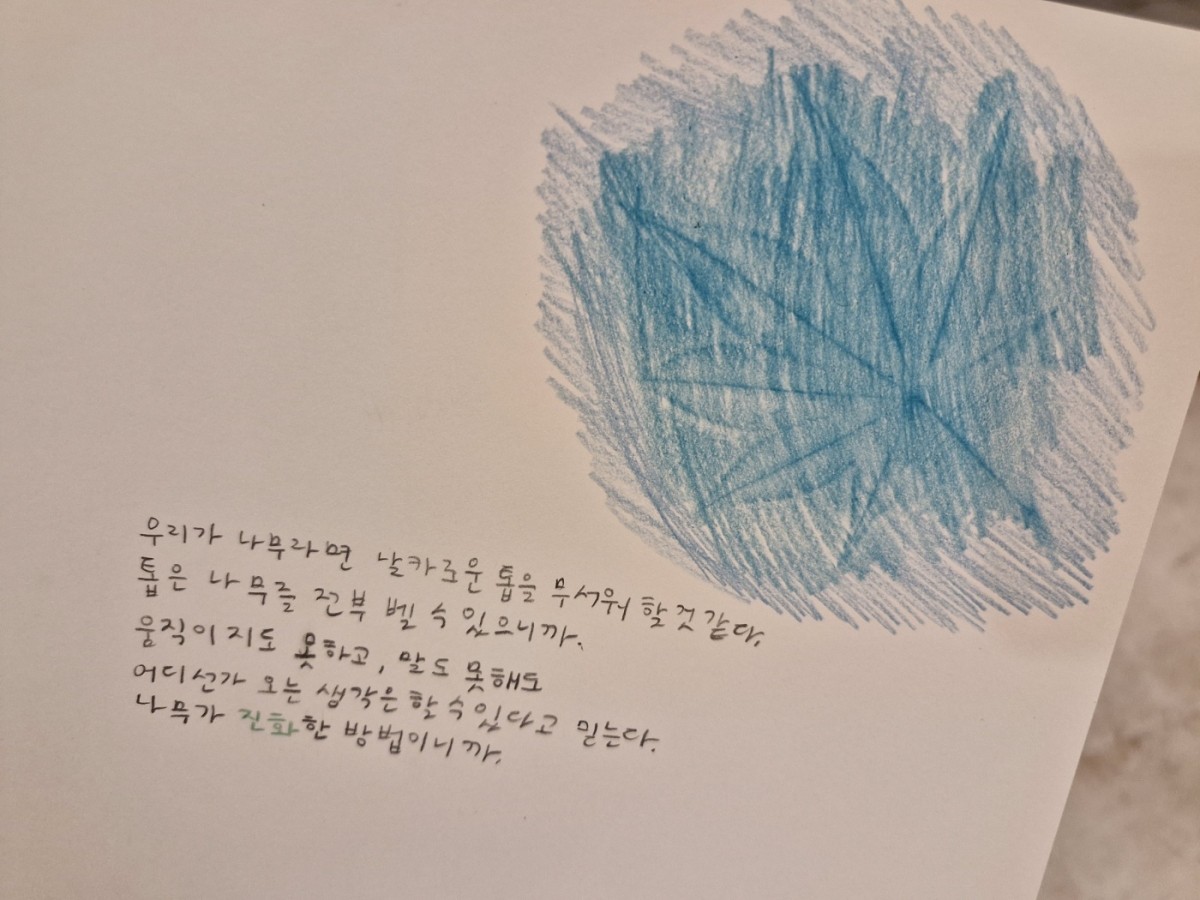 우리가 나무라면 날카로운 톱을 무서워 할것 같다.
톱은 나무를 전부 벨 수 있으니까.
움직이지도 못하고, 말도 못해도
어디선가 오는 생각은 할 수 있다고 믿는다.
나무가 진화한 방법이니까.